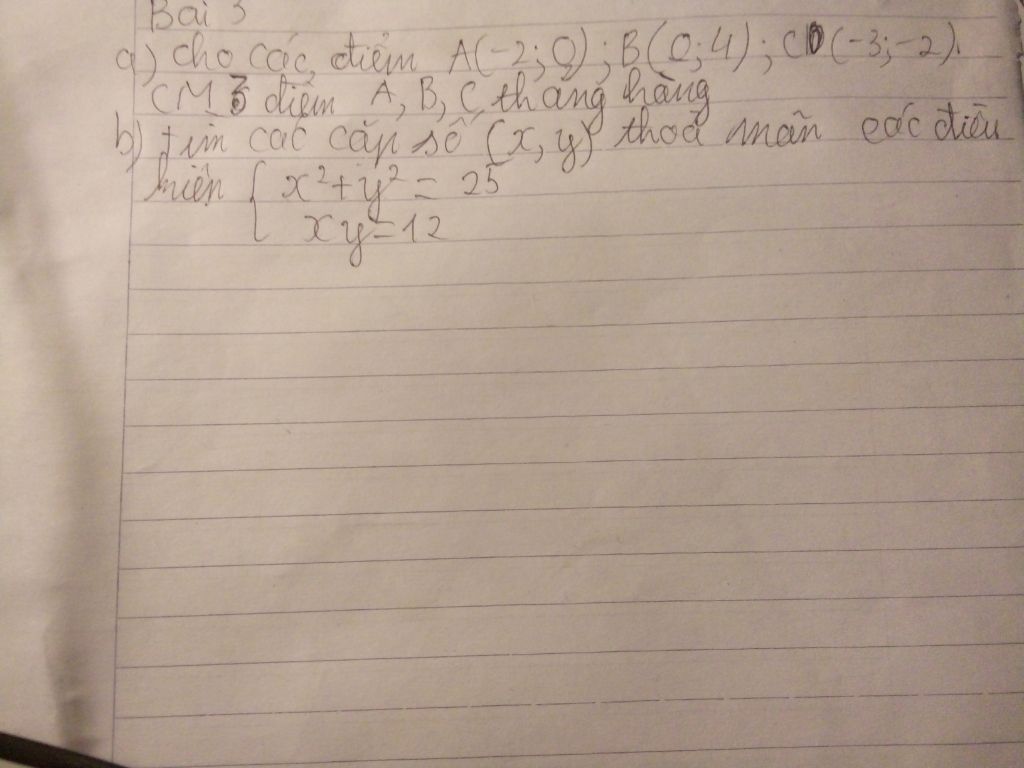 Bài 3
a) cho các điểm A(-2; 0); B(0; 4); C(-3; -2).
CM 3 điểm A, B, C thẳng hàng
b) tìm các cặp số (x, y) thoả mãn các điều
kiện { x² + y² = 25
xy = 12